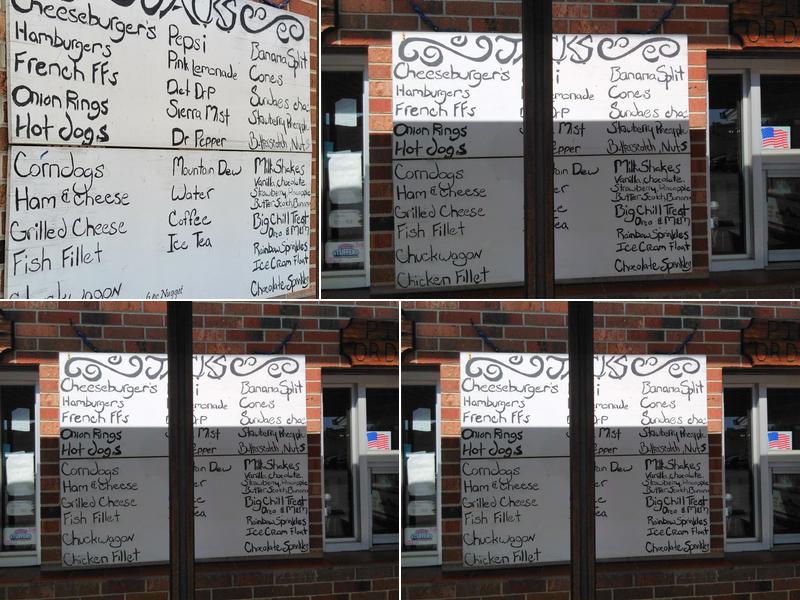 Cheeseburger's
Hamburgers
French FFs
Onion Rings
Hot dogs
Corndogs
Ham & Cheese
Grilled Cheese
Fish Fillet
Pepsi
Pink Lemonade
Diet DrP
Sierra Mist
Dr Pepper
Mountain Dew
Water
Coffee
Ice Tea
Banana Split
Cones
Sundaes choc
Strawberry Pineapple
Butterscotch, Nuts
MilkShakes
Vanilla, chocolate,
Strawberry, Pineapple
Butter Scotch, Banana
Big Chill Treat
Oreo & M&M
Rainbow Sprinkles
Ice Cream Float
Chocolate Sprinkles
JACKS
Cheeseburger's
Hamburgers
French FFs
Onion Rings
Hot dogs
Corndogs
Ham & Cheese
Grilled Cheese
Fish Fillet
Chuckwagon
Chicken Fillet
Banana Split
Cones
Sundaes choc
Strawberry Pineapple
Butterscotch, Nuts
MilkShakes
Vanilla, chocolate,
Strawberry, Pineapple
Butter Scotch, Banana
Big Chill Treat
Oreo & M&M
Rainbow Sprinkles
Ice Cram Float
Chocolate Sprinkles
Cheeseburger's
Hamburgers
French FFs
Onion Rings
Hot dogs
Corndogs
Ham & Cheese
Grilled Cheese
Fish Fillet
Chuckwagon
Chicken Fillet
Banana Split
Cones
Sundaes choc
Strawberry Pineapple
Butterscotch, Nuts
MilkShakes
Vanilla, chocolate,
Strawberry, Pineapple
Butter Scotch, Banana
Big Chill Treat
Oreo & M&M
Rainbow Sprinkles
Ice Cram Float
Chocolate Sprinkles
Cheeseburger's
Hamburgers
French FFs
Onion Rings
Hot dogs
Corndogs
Ham & Cheese
Grilled Cheese
Fish Fillet
Chuckwagon
Chicken Fillet
Banana Split
Cones
Sundaes choc
Strawberry Pineapple
Butterscotch, Nuts
MilkShakes
Vanilla, chocolate,
Strawberry, Pineapple
Butter Scotch, Banana
Big Chill Treat
Oreo & M&M
Rainbow Sprinkles
Ice Cram Float
Chocolate Sprinkles